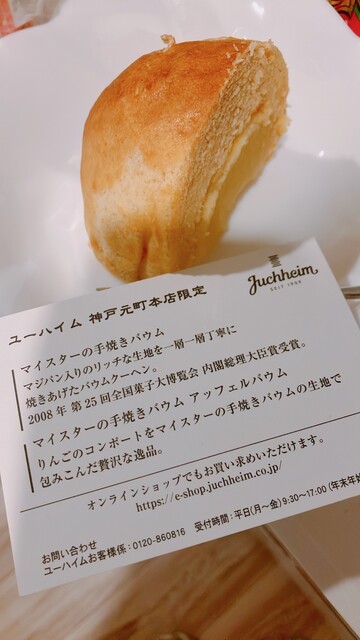 Juchheim
SEIT 1909
ユーハイム 神戸元町本店限定
マイスターの手焼きバウム
マジパン入りのリッチな生地を一層一層丁寧に
焼きあげたバウムクーヘン。
2008年 第25回全国菓子大博覧会 内閣総理大臣賞受賞。
マイスターの手焼きバウム アップフェルバウム
りんごのコンポートをマイスターの手焼きバウムの生地で
包みこんだ贅沢な逸品。
オンラインショップでもお買い求めいただけます。
https://e-shop.juchheim.co.jp/
お問い合わせ
ユーハイムお客様係：0120-860816 受付時間：平日(月～金) 9:30～17:00 (年末年始